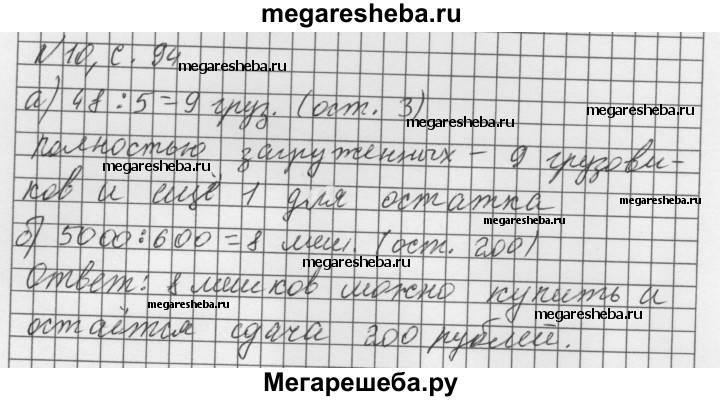 megaresheba.ru
N10, с. 94
megaresheba.ru
а) 48 : 5 = 9 груз. (ост. 3)
megaresheba.ru
megaresheba.ru
полностью загруженных – 9 грузови-
megaresheba.ru
megaresheba.ru
ков и ещё 1 для остатка
megaresheba.ru
megaresheba.ru
б) 5000 : 600 = 8 меш. (ост. 200)
megaresheba.ru
Ответ: 8 мешков можно купить и
megaresheba.ru
megaresheba.ru
остаётся сдача 200 рублей.
megaresheba.ru
Мегарешеба.ру